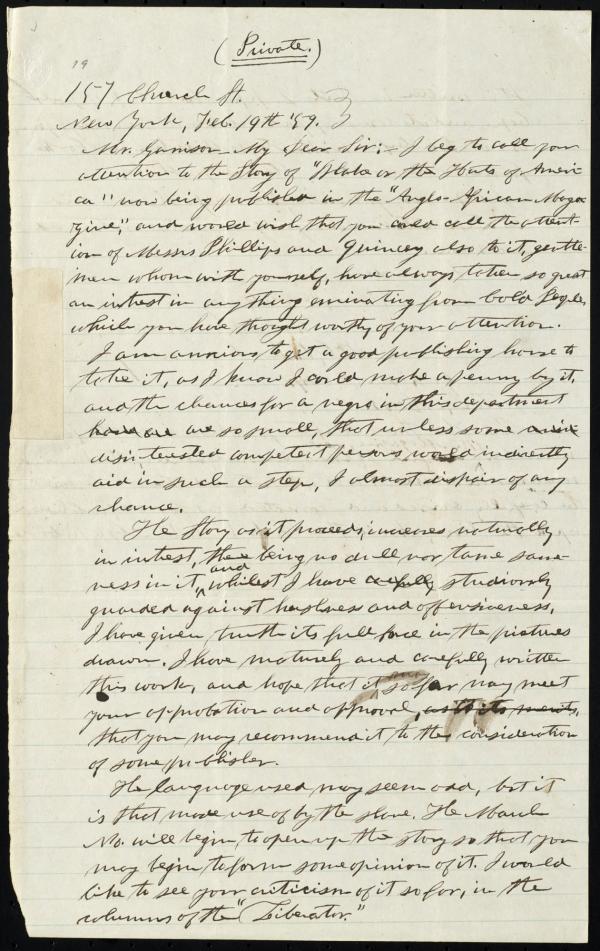 (Private.)
19
157 Church St.
New York, Feb. 19th '59.
Mr. Garrison My Dear Sir:- I beg to call your
attention to the Story of "Blake or the Huts of Ameri-
ca" now being published in the "Anglo-African Maga-
zine," and would wish that you could call the attent-
ion of Messrs Phillips and Quincey also to it, gentle-
men whom with yourself, have always taken so great
an intrest in anything eminating from Cold People,
which you have thought worthy of your attention.
I am anxious to get a good publishing house to
take it, as I know I could make a penny by it,
and the chances for a negro in this department
are so small, that unless some
disintrested competent persons would indirectly
aid in such a step, I almost dispair of any
chance.
The Story as it proceeds increases naturally
in intrest, there being no dull nor tame same-
ness in it, and whilest I have carefully studiously
guarded against harshness and offensiveness,
I have given truth its full force in the pictures
drawn. I have maturely and carefully written
this work, and hope that it so far may meet
your approbation and approval, as to its merits,
that you may recommend it to the consideration
of some publisher.
The language used may seem odd, but it
is that made use of by the slave. The March
No. will begin to open up the story so that you
may begin to form some opinion of it. I would
like to see your criticism of it so far, in the
columns of the "Liberator."